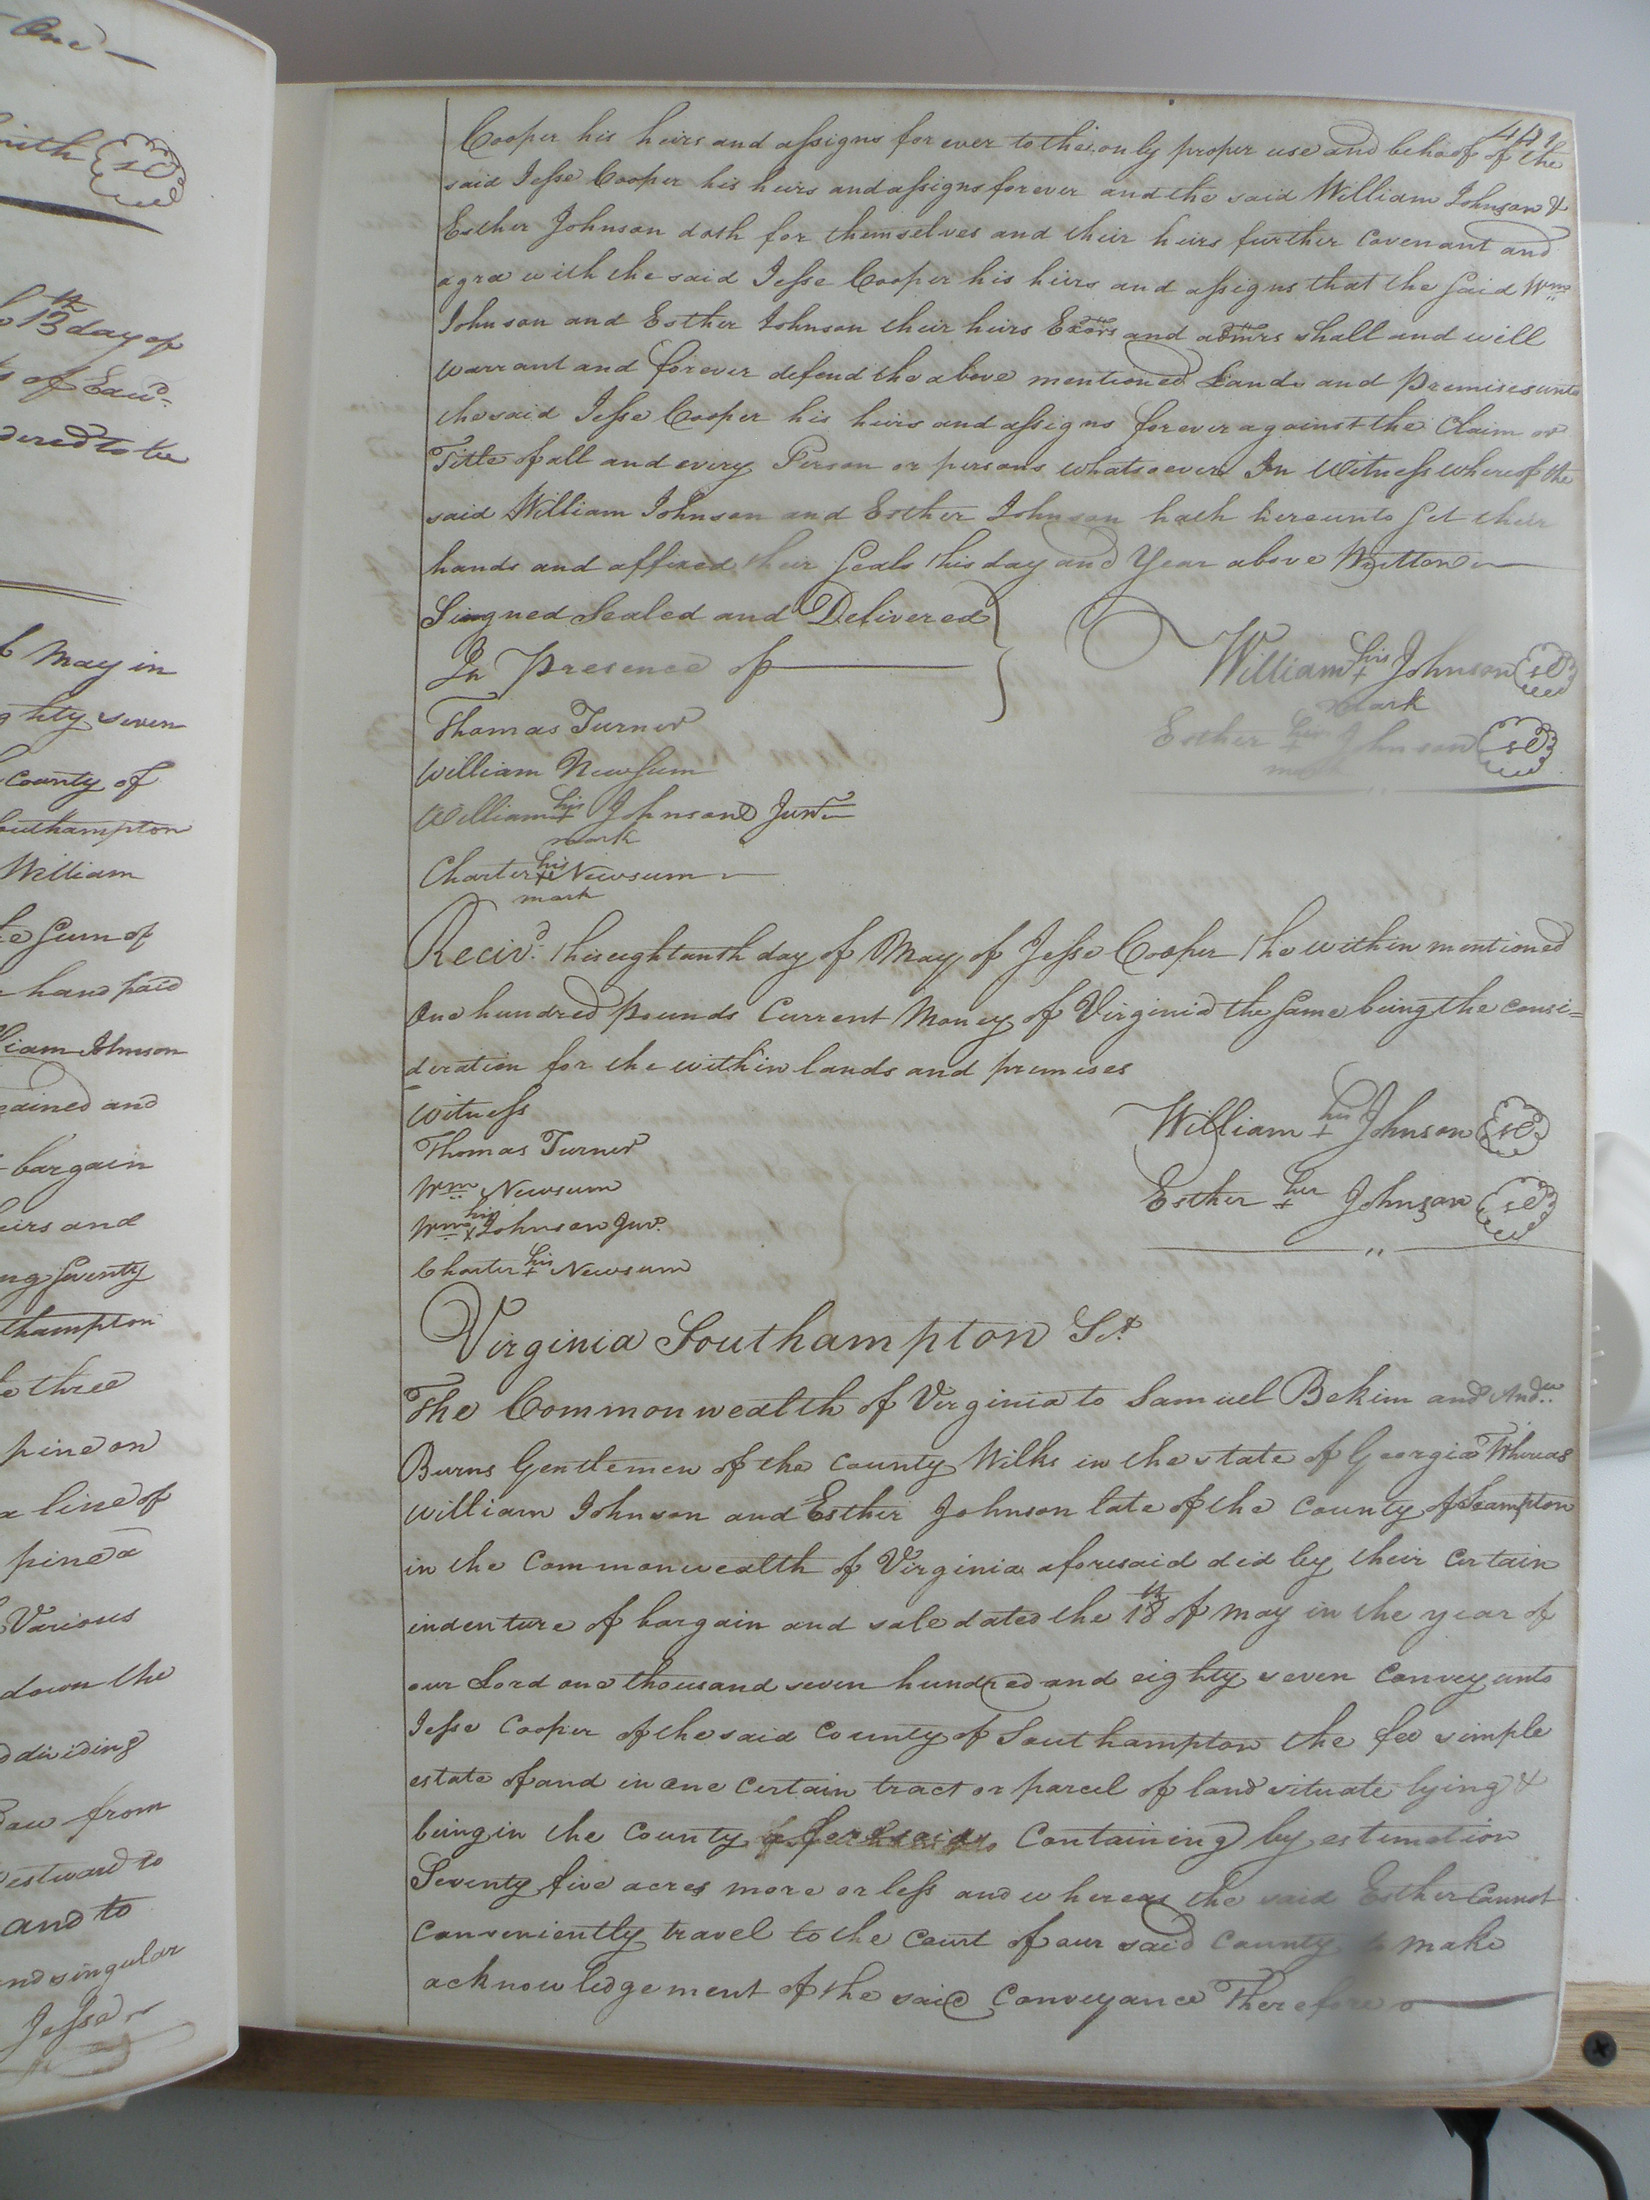 One
mith sl
13th day of
of Exd.
dered to be
May in
ghty seven
County of
outhampton
William
e Sum of
hand paid
liam Johnson
ained and
bargain
eirs and
ng Seventy
thampton
e three
pine on
a line of
pine a
Various
down the
dividing
from
estward to
and to
nd singular
Jesse
Cooper his heirs and assigns for ever to the only proper use and behoof of the
said Jesse Cooper his heirs and assigns forever and the said William Johnson &
Esther Johnson doth for themselves and their heirs further Covenant and
agree with the said Jesse Cooper his heirs and assigns that the said Wm.
Johnson and Esther Johnson their heirs Exors and admrs shall and will
warrant and forever defend the above mentioned Lands and Premises unto
the said Jesse Cooper his heirs and assigns forever against the Claim or
Title of all and every Person or persons whatsoever In Witness whereof the
said William Johnson and Esther Johnson hath hereunto set their
hands and affixed their Seals this day and Year above Written
Singned Sealed and Delivered
In Presence of
William his + Johnson sl
mark
Thomas Turner
Esther her + Johnson sl
mark
William Newsum
William his + Johnson Junr
mark
Charter his + Newsum
mark
Recivd. this eightenth day of May of Jesse Cooper the within mentioned
One hundred Pounds Current Money of Virginia the same being the consi=
deration for the within lands and premises
Witness
William his + Johnson sl
Thomas Turner
Wm Newsum
Esther her + Johnson sl
Wm his + Johnson Junr.
Charter his + Newsum
Virginia Southampton Sct
The Commonwealth of Virginia to Samuel Bekim and Andw.
Burns Gentlemen of the County Wilks in the state of Georgia Whereas
William Johnson and Esther Johnson late of the County of Sampton
in the Commonwealth of Virginia aforesaid did by their Certain
indenture of bargain and sale dated the 18th of May in the year of
our Lord one thousand seven hundred and eighty seven Convey unto
Jesse Cooper of the said County of Southampton the fee simple
estate of and in one Certain tract or parcel of land situate lying &
being in the County aforesaid Containing by estimation
Seventy five acres more or less and whereas the said Esther Cannot
Conveniently travel to the Court of our said County to make
acknowledgement of the said Conveyance Therefore